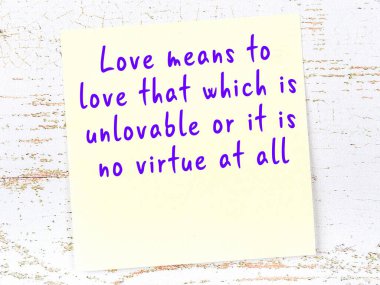 Love means to
love that which is
unlovable or it is
no virtue at all